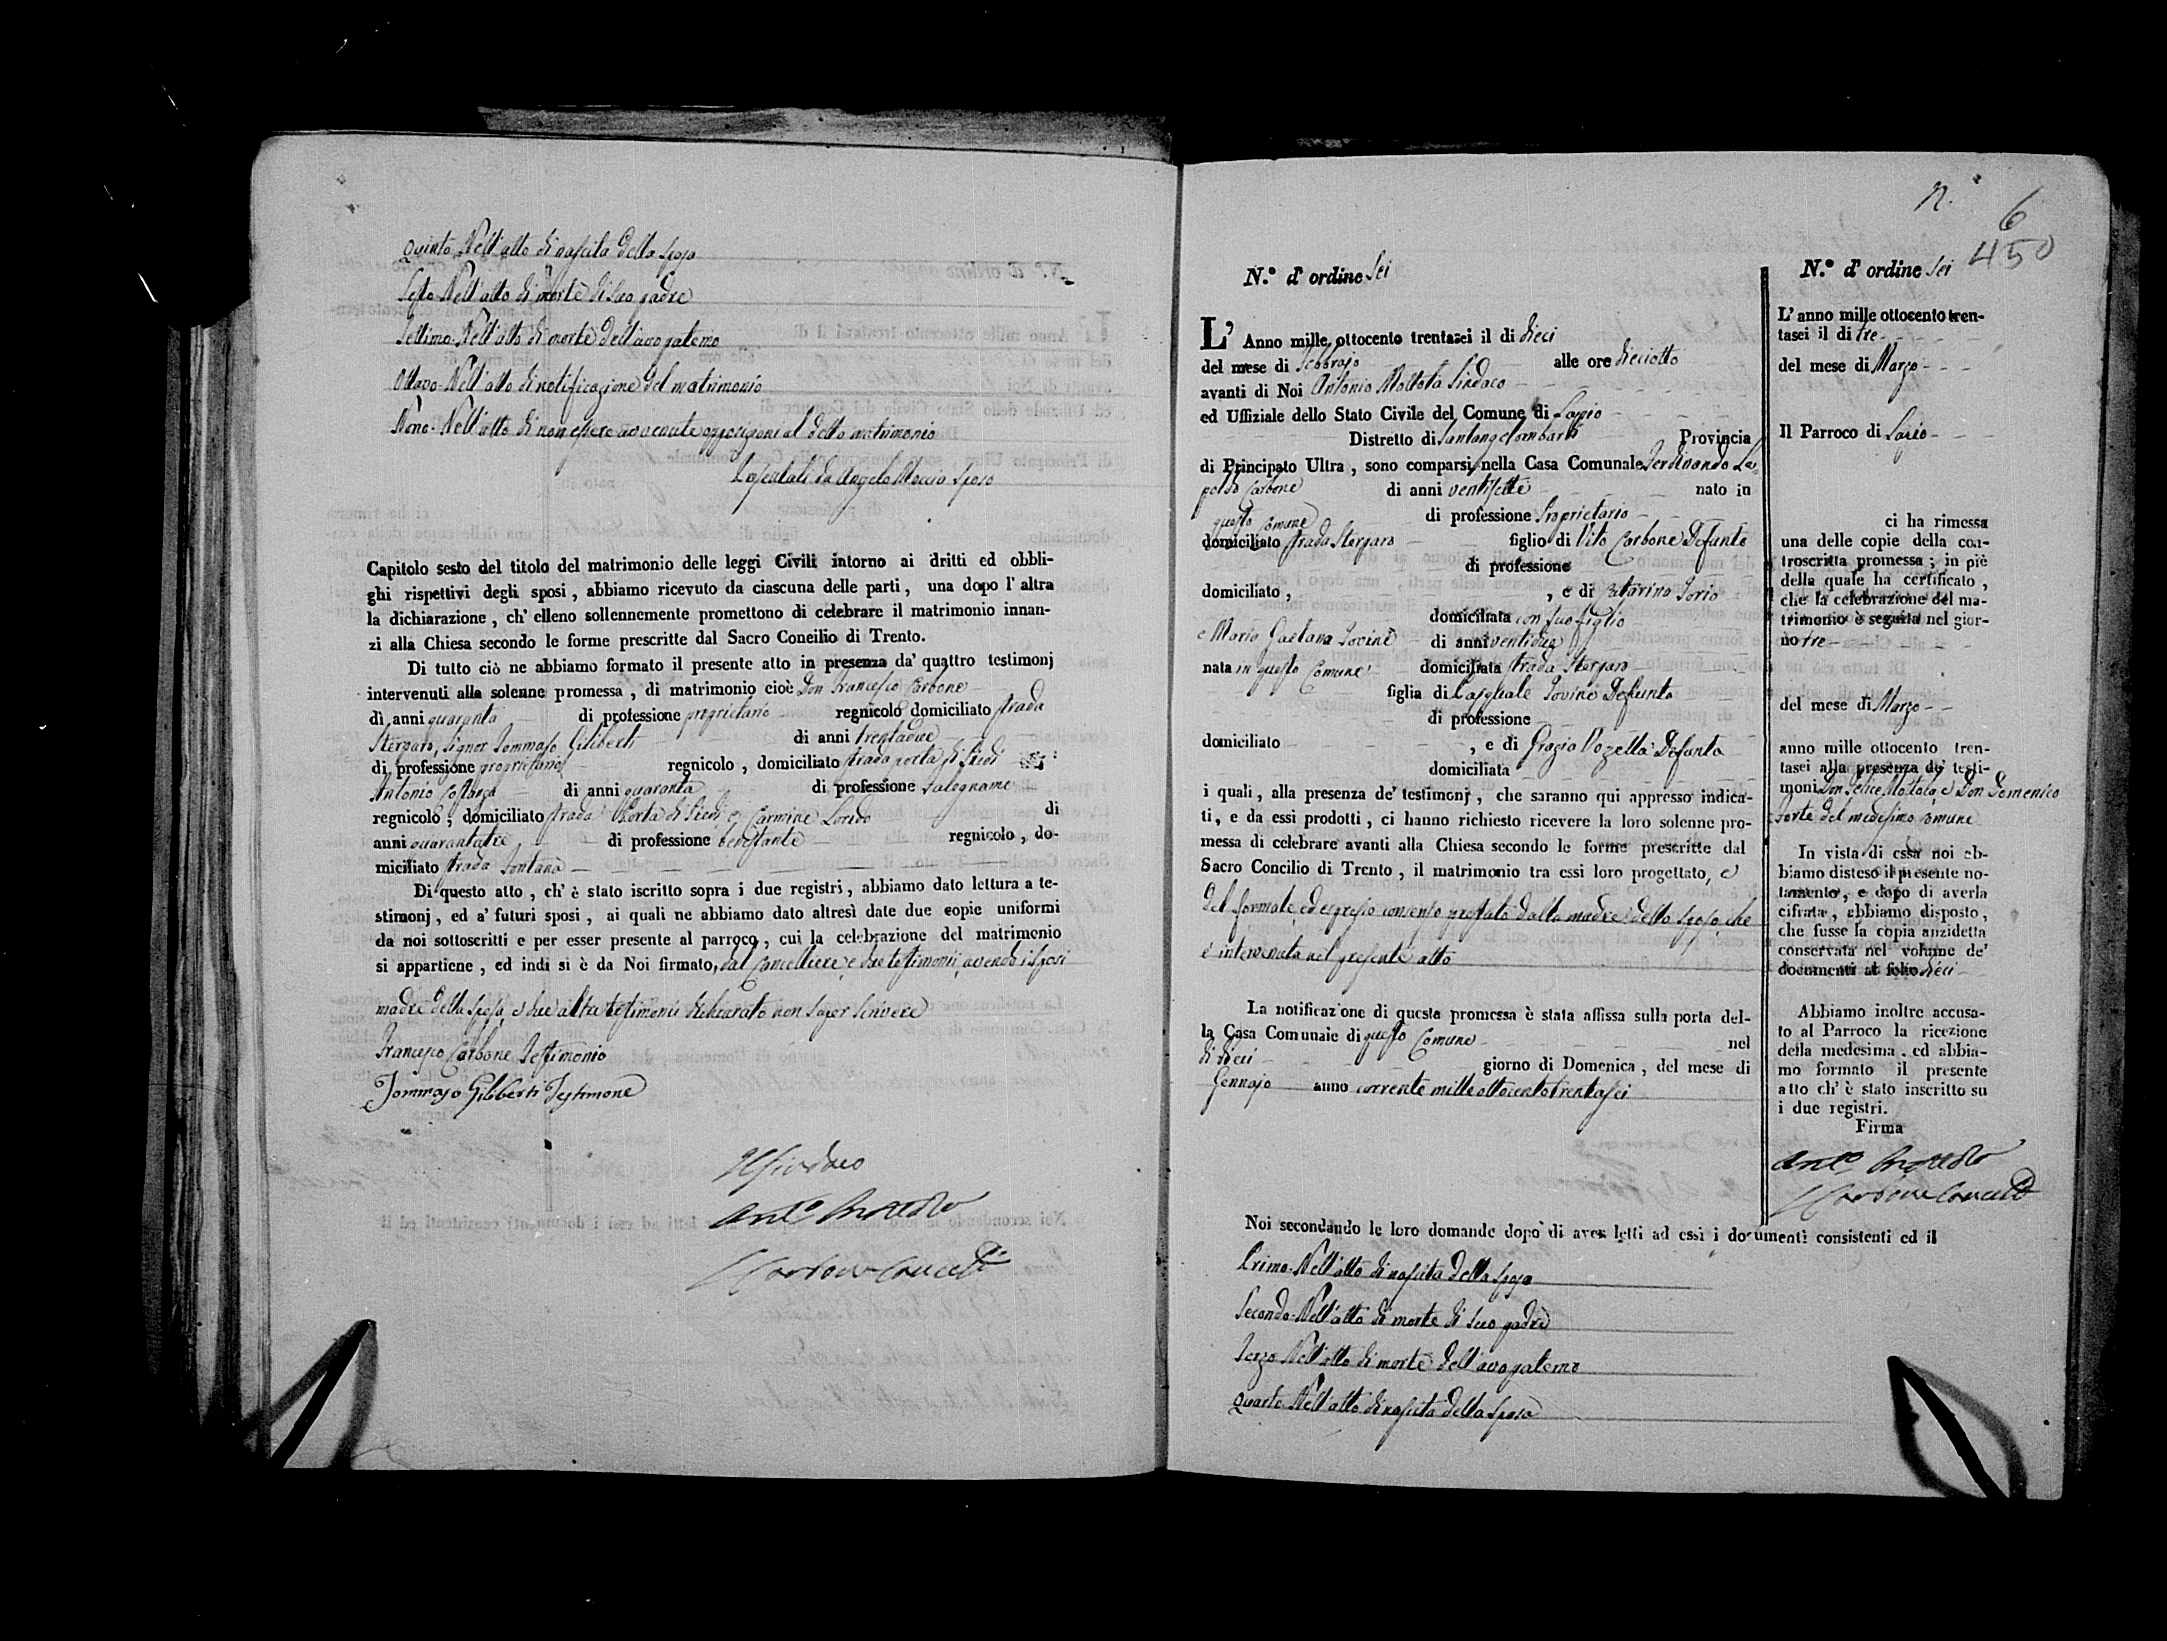 Quinto. Nell'atto di nascita della sposa
Sesto. Nell'atto di morte di suo padre
Settimo. Nell'atto di morte dell'avo paterno
Ottavo. Nell'atto di notificazione del matrimonio
Nono. Nell'atto di non essere avvenute opposizioni al detto matrimonio
da Angelo sposo
Capitolo sesto del titolo del matrimonio delle leggi Civili intorno ai dritti ed obbli-
ghi rispettivi degli sposi, abbiamo ricevuto da ciascuna delle parti, una dopo l'altra
la dichiarazione, ch'elleno sollennemente promettono di celebrare il matrimonio innan-
zi alla Chiesa secondo le forme prescritte dal Sacro Concilio di Trento.
Di tutto ciò ne abbiamo formato il presente atto in presenza da' quattro testimonj
intervenuti alla solenne promessa, di matrimonio cioè Don Francesco Carbone
di anni quaranta di professione proprietario regnicolo domiciliato strada
Sterparo, Signor Tommaso Giliberti di anni trentadue
di professione proprietario regnicolo, domiciliato strada porta di Piedi
Antonio Costanza di anni quaranta di professione falegname
regnicolo, domiciliato strada Porta di Piedi e Carmine di
anni quarantatre di professione regnicolo, do-
miciliato strada Fontana
Di questo atto, ch'è stato iscritto sopra i due registri, abbiamo dato lettura a te-
stimonj, ed a' futuri sposi, ai quali ne abbiamo dato altresì date due copie uniformi
da noi sottoscritti e per esser presente al parroco, cui la celebrazione del matrimonio
si appartiene, ed indi si è da Noi firmato, dal Cancelliere e due testimonii, avendo i sposi
madre dello sposo, e due altri testimonii dichiarato non saper scrivere
Francesco Carbone Testimonio
Tommaso Giliberti Testimone
Il Sindaco
Ant.o Mottola
Carbone Canc.e
N.
6
450
N.° d' ordine Sei
L' Anno mille ottocento trentasei il di dieci
del mese di Febbrajo alle ore dieciotto
avanti di Noi Antonio Mottola Sindaco
ed Uffiziale dello Stato Civile del Comune di Lapio
Distretto di Santangelombardi Provincia
di Principato Ultra, sono comparsi nella Casa Comunale Ferdinando Leo-
poldo Carbone di anni ventisette nato in
questo Comune di professione Proprietario
domiciliato strada Sterparo figlio di Vito Carbone Defunto
di professione
domiciliato, , e di Catarina Iorio
domiciliata con suo figlio
e Maria Gaetana Iovine di anni ventidue
nata in questo Comune domiciliata strada Sterparo
figlia di Pasquale Iovine Defunto
di professione
domiciliato , e di Grazia Vozella Defunta
domiciliata
i quali, alla presenza de' testimonj, che saranno qui appresso indica-
ti, e da essi prodotti, ci hanno richiesto ricevere la loro solenne pro-
messa di celebrare avanti alla Chiesa secondo le forme prescritte dal
Sacro Concilio di Trento, il matrimonio tra essi loro progettato, e
del formale, ed espresso consenso prestato dalla madre dello sposo, che
è intervenuta nel presente atto
La notificazione di questa promessa è stata affissa sulla porta del-
la Casa Comunale di questo Comune nel
di dieci giorno di Domenica, del mese di
Gennajo anno corrente mille ottocento trentasei
Noi secondando le loro domande dopo di aver letti ad essi i documenti consistenti ed il
Primo. Nell'atto di nascita dello sposo
Secondo. Nell'atto di morte di suo padre
Terzo. Nell'atto di morte dell'avo paterno
Quarto. Nell'atto di nascita della sposa
N.° d' ordine Sei
L' anno mille ottocento tren-
tasei il di tre
del mese di Marzo
Il Parroco di Lapio
ci ha rimessa
una delle copie della con-
troscritta promessa; in piè
della quale ha certificato,
che la celebrazione del ma-
trimonio è seguita nel gior-
no tre
del mese di Marzo
anno mille ottocento tren-
tasei alla presenza de' testi-
moni Don Felice Mottola, e Don Domenico
Forte del medesimo Comune
In vista di essa noi ab-
biamo disteso il presente no-
tamento, e dopo di averla
cifrata, abbiamo disposto,
che fusse la copia anzidetta
conservata nel volume de'
documenti at folio dieci
Abbiamo inoltre accusa-
to al Parroco la ricezione
della medesima, ed abbia-
mo formato il presente
atto ch'è stato inscritto su
i due registri.
Firma
Ant.o Mottola
Carbone Canc.e